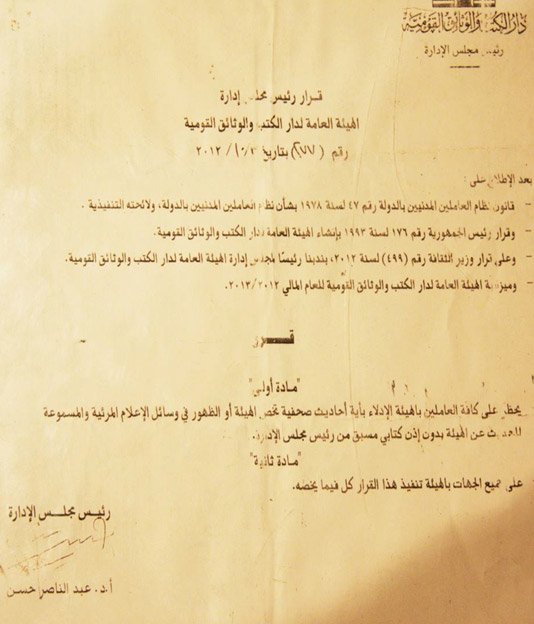 دار الكتب والوثائق القومية
رئيس مجلس الإدارة
قرار رئيس مجلس إدارة
الهيئة العامة لدار الكتب والوثائق القومية
رقم بتاريخ ٢٠١٢
بعد الإطلاع على :
- قانون نظام العاملين المدنيين بالدولة رقم ٤٧ لسنة ١٩٧٨ بشأن نظام العاملين المدنيين بالدولة، ولائحته التنفيذية .
- وقرار رئيس الجمهورية رقم ١٧٦ لسنة ١٩٩٣ بإنشاء الهيئة العامة لدار الكتب والوثائق القومية.
- وعلى قرار وزير الثقافة رقم (٤٩٩) لسنة ٢٠١٢، بندبنا رئيسًا لمجلس إدارة الهيئة العامة لدار الكتب والوثائق القومية.
- وميزانية الهيئة العامة لدار الكتب والوثائق القومية للعام المالي ٢٠١٣/٢٠١٢.
قـــرر
"مادة أولى"
يحظر على كافة العاملين بالهيئة الإدلاء بأية أحاديث صحفية تخص الهيئة أو الظهور في وسائل الإعلام المرئية والمسموعة
للحديث عن الهيئة بدون إذن كتابي مسبق من رئيس مجلس الإدارة.
"مادة ثانية"
على جميع الجهات بالهيئة تنفيذ هذا القرار كل فيما يخصه.
رئيس مجلس الإدارة
أ.د. عبد الناصر حسن